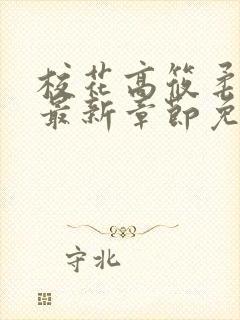 校花高筱柔
最新章节免
守北